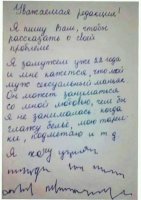 Уважаемая редакция!
Я пишу Вам, чтобы
рассказать о своей
проблеме.
Я замужем уже 22 года
и мне кажется, что мой
муж сексуальный маньяк
Он может заниматься
со мной любовью, чем бы
я не занималась когда
глажу белье, мою тарел-
ки, подметаю и т д
Я хочу